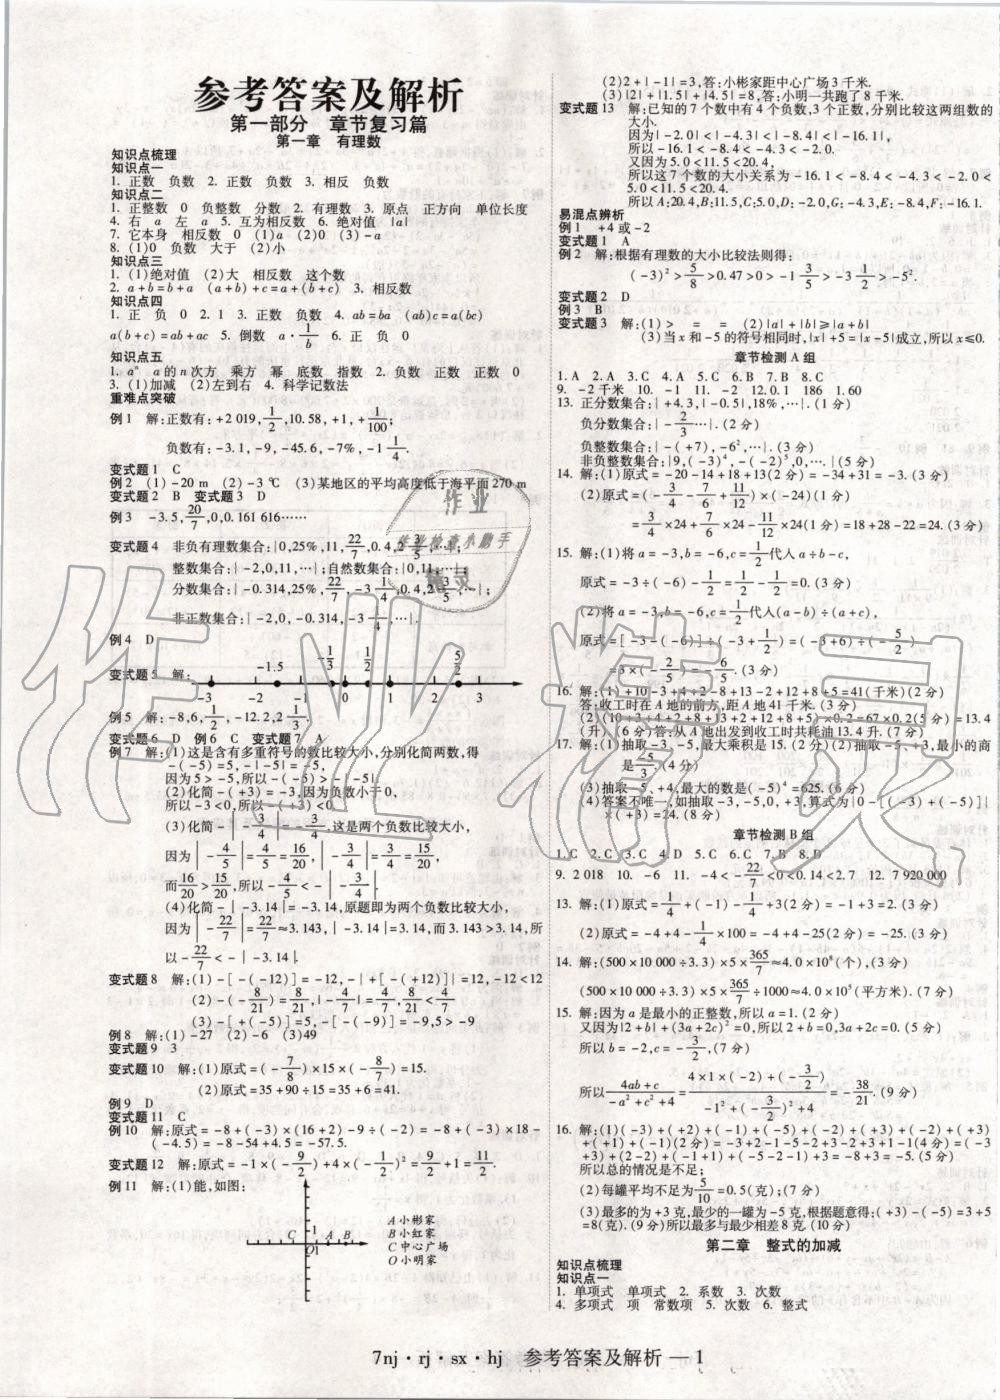 参考答案及解析
第一部分　章节复习篇
第一章　有理数
知识点梳理
知识点一
1. 正数　负数　2. 正数　负数　3. 相反　负数
知识点二
1. 正整数　0　负整数　分数　2. 有理数　3. 原点　正方向　单位长度
4. 右　a　左　a　5. 互为相反数　6. 绝对值　|a|
7. 它本身　相反数　0　(1)a　(2)0　(3)-a
8. (1)0　负数　大于　(2)小
知识点三
1. (1)绝对值　(2)大　相反数　这个数
2. a+b=b+a　(a+b)+c=a+(b+c)　3. 相反数
知识点四
1. 正　负　0　2. 1　3. 正数　负数　4. ab=ba　(ab)c=a(bc)
a(b+c)=ab+ac　5. 倒数　a·1/b　6. 正　负　0
知识点五
1. aⁿ　a的n次方　乘方　幂　底数　指数　2. 负数　正数　正数　0
3. (1)加减　(2)左到右　4. 科学记数法
重难点突破
例1　解:正数有:+2 019,1/2,10.58,+1,+1/100;
负数有:-3.1,-9,-45.6,-7%,-1 1/4.
变式题1　C
例2　(1)-20 m　(2)-3 ℃　(3)某地区的平均高度低于海平面270 m
变式题2　B　变式题3　D
例3　-3.5,20/7,0,0.161 616……
变式题4　非负有理数集合:{0,25%,11,22/7,0.4,2 3/5,…};
整数集合:{-2,0,11,…};自然数集合:{0,11,…};
分数集合:{-0.314,25%,22/7,-3 1/4,0.4,2 3/5,…};
非正数集合:{-2,0,-0.314,-3 1/4,…}.
例4　D
变式题5　解:
-1.5　-1/3　1/2　5/2
-3　-2　-1　0　1　2　3
例5　解:-8,6,1/2,-12.2,2 1/3.
变式题6　D　例6　C　变式题7　A
例7　解:(1)这是含有多重符号的数比较大小,分别化简两数,得
-(-5)=5,-|-5|=-5,
因为5>-5,所以-(-5)>-|-5|
(2)化简-(+3)=-3,因为负数小于0,
所以-3<0,所以-(+3)<0.
(3)化简-|-3/4|=-3/4,这是两个负数比较大小,
因为|-4/5|=4/5=16/20,|-3/4|=3/4=15/20,
而16/20>15/20,所以-4/5<-|-3/4|.
(4)化简-|-3.14|=-3.14,原题即为两个负数比较大小,
因为|-22/7|=22/7≈3.143,|-3.14|=3.14,而3.143>3.14,所
以-22/7<-|-3.14|.
变式题8　解:(1)-[-(-12)]=-12,-|+[-(+12)]|=12,-12<12
(2)-(-8/21)=8/21,|-4/7|=4/7,8/21<4/7
(3)-[+(-5)]=5,-[-(-9)]=-9,5>-9
例8　解:(1)-27　(2)-6　(3)49
变式题9　3
变式题10　解:(1)原式=(-7/8)×15×(-8/7)=15.
(2)原式=35+90÷15=35+6=41.
例9　D
变式题11　C
例10　解:原式=-8+(-3)×(16+2)-9÷(-2)=-8+(-3)×18-
(-4.5)=-8-54+4.5=-57.5.
变式题12　解:原式=-1×(-9/2)+4×(-1/2)²=9/2+1=11/2.
例11　解:(1)能,如图:
C　O　1　1　A　B
A小彬家
B小红家
C中心广场
O小明家
(2)2+|-1|=3,答:小彬家距中心广场3千米.
(3)|2|+|1.5|+|4.5|=8,答:小明一共跑了8千米.
变式题13　解:已知的7个数中有4个负数,3个正数,分别比较这两组数的
大小.
因为|-2.0|<|-4.3|<|-8.4|<|-16.1|,
所以-16.1<-8.4<-4.3<-2.0.
又因为5.0<11.5<20.4,
所以这7个数的大小关系为-16.1<-8.4<-4.3<-2.0<
5.0<11.5<20.4.
所以A:20.4,B:11.5,C:5.0,D:-2.0,G:-4.3,E:-8.4,F:-16.1.
易混点辨析
例1　+4或-2
变式题1　A
例2　解:根据有理数的大小比较法则得:
(-3)²>5/8>0.47>0>-1 5/3>-3 1/2>-5².
变式题2　D
例3　B
变式题3　解:(1)>　=　=　(2)|a|+|b|≥|a+b|
(3)当x和-5的符号相同时,|x|+5=|x-5|成立,所以x≤0.
章节检测A组
1. A　2. A　3. C　4. C　5. A　6. B　7. B　8. C
9. -2千米　10. -1　11. -2　12. 0.1　186　1.60
13. 正分数集合:{+4.3,|-0.5|,18%,…}.(1分)
负分数集合:{-2/3,…}.(2分)
负整数集合:{-(+7),-6²,…}.(3分)
非负整数集合:{9,(-3)⁴,-(-2)⁵,0,…}.(5分)
14. 解:(1)原式=-20-14+18+13(2分)=-34+31=-3.(3分)
(2)原式=(-3/4-7/6+11/12)×(-24)(1分)
=3/4×24+7/6×24-11/12×24(1分)=18+28-22=24.(3分)
15. 解:(1)将a=-3,b=-6,c=1/2代入a÷b-c,
原式=-3÷(-6)-1/2=1/2-1/2=0.(2分)
(2)将a=-3,b=-6,c=1/2代入(a-b)÷(a+c),
原式=[-3-(-6)]÷(-3+1/2)=(-3+6)÷(-5/2)
=3×(-2/5)=-6/5.(3分)
16. 解:(1)+10-3+4+2-8+13-2+12+8+5=41(千米)(2分)
答:收工时在A地的前方,距A地41千米.(3分)
(2)(10+3+4+2+8+13+2+12+8+5)×0.2=67×0.2(5分)=13.4
(升).(6分)答:从A地出发到收工时共耗油13.4升.(7分)
17. 解:(1)抽取-3、-5,最大乘积是15.(2分)(2)抽取-5、+3,最小的商
是-5/3.(4分)
(3)抽取-5、+4,最大的数是(-5)⁴=625.(6分)
(4)答案不唯一,如抽取-3、-5、0,+3,算式为{0-[(-3)+(-5)]}
×(+3)=24.(8分)
章节检测B组
1. C　2. C　3. C　4. D　5. C　6. C　7. B　8. D
9. 2 018　10. -6　11. -4<-22/7<0<0.14<2.7　12. 7 920 000
13. 解:(1)原式=1/4+(-1)-1/4+3(2分)=-1+3=2.(3分)
(2)原式=-4-1/4×100=-4-25(2分)=-25.(3分)
14. 解:(500×10 000÷3.3)×5×365/7≈4.0×10⁸(个),(3分)
(500×10 000÷3.3)×5×365/7÷1000≈4.0×10⁵(平方米).(7分)
15. 解:因为a是最小的正整数,所以a=1.(2分)
又因为|2+b|+(3a+2c)²=0,所以2+b=0,3a+2c=0.(5分)
所以b=-2,c=-3/2,(7分)
所以(4ab+c)/(-a²+c²+4)=(4×1×(-2)+(-3/2))/(-1²+(-3/2)²+4)=-38/21.(9分)
16. 解:(1)(-3)+(+2)+(-1)+(-5)+(-2)+(+3)+(-2)+(+3)
+(+1)+(-1)(2分)=-3+2-1-5-2+3-2+3+1-1(4分)=(-3
+3)+(2-2)+(-1+1)+(-5-2-1+3)=-5(克)(5分)
所以总的情况是不足;
(2)每罐平均不足为5/10=0.5(克);(7分)
(3)最多的为+3克,最少的一罐为-5克,根据题意得:(+3)-(-5)
=8(克).(9分)所以最多与最少相差8克.(10分)
第二章　整式的加减
知识点梳理
知识点一
1. 单项式　单项式　2. 系数　3. 次数
4. 多项式　项　常数项　5. 次数　6. 整式
7nj·rj·sx·hj　参考答案及解析 — 1
作业
作业检查小助手
精灵
作业精灵